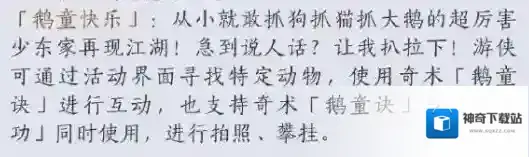 「鹅童快乐」：从小就敢抓狗抓猫抓大鹅的超厉害
少东家再现江湖！急到说人话？让我扒拉下！游侠
可通过活动界面寻找特定动物，使用奇术「鹅童
诀」进行互动，也支持奇术「鹅童诀」
功」同时使用，进行拍照、攀挂。
神奇下载站